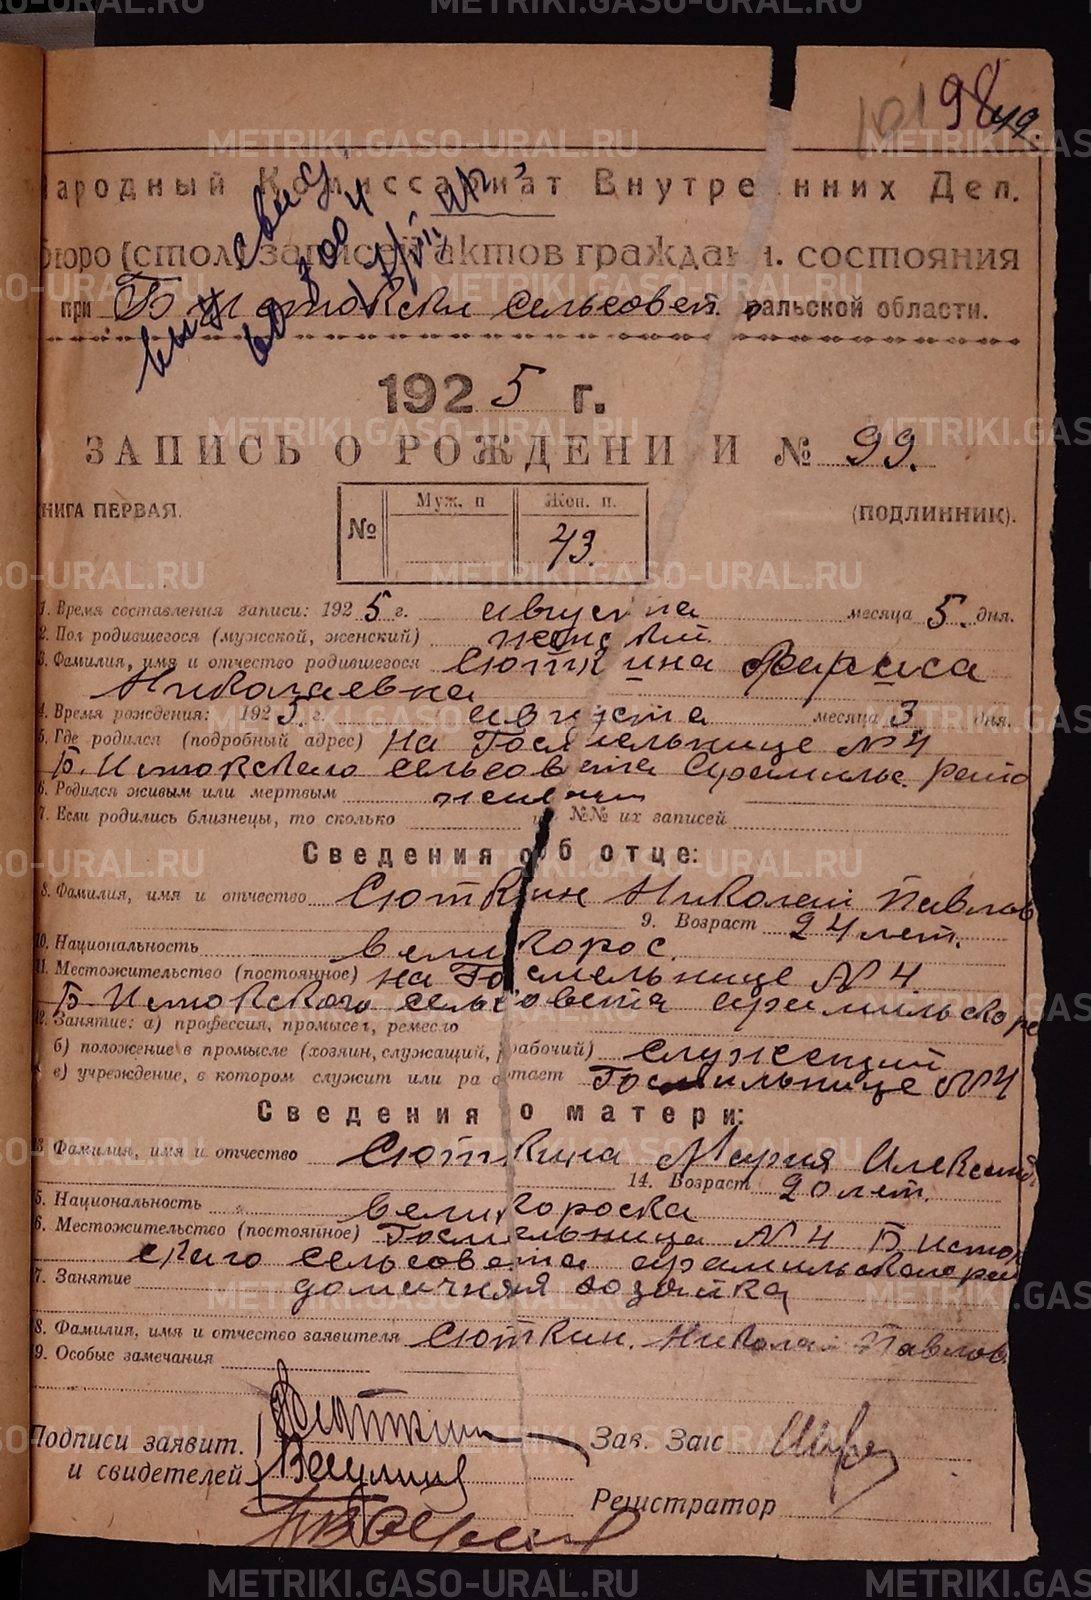 98
49.
Народный Комиссариат Внутренних Дел.
бюро (стол) записей актов граждан. состояния
при Б Истокском сельсовет. ральской области.
1925 г.
ЗАПИСЬ О РОЖДЕНИИ № 99.
НИГА ПЕРВАЯ. (ПОДЛИННИК).
№ Муж. п Жен. п.
43.
1. Время составления записи: 1925 г. августа месяца 5. дня.
2. Пол родившегося (мужской, женский) женский
3. Фамилия, имя и отчество родившегося Сюткина
Николаевна
4. Время рождения: 1925 г. августа месяца 3 дня.
5. Где родился (подробный адрес) На Госмельнице №4
Б. Истокского сельсовета Арамильс. рано
6. Родился живым или мертвым живым
7. Если родились близнецы, то сколько №№ их записей
Сведения об отце:
8. Фамилия, имя и отчество Сюткин Николай Павлов
9. Возраст 24 лет.
10. Национальность великорос.
11. Местожительство (постоянное) На Госмельнице №4.
Б Истокского сельсовета арамильско ре
12. Занятие: а) профессия, промысел, ремесло
б) положение в промысле (хозяин, служащий, рабочий) служещий
в) учреждение, в котором служит или работает Госмильнице №4
Сведения о матери:
13 Фамилия, имя и отчество Сюткина Мария Александ
14. Возраст 20 лет.
5. Национальность великороска
6. Местожительство (постоянное) Госмельница №4 Б Исток
ского сельсовета арамильскогорай
7. Занятие домичняя хозяйка
8. Фамилия, имя и отчество заявителя Сюткин. Николай Павлов
9. Особые замечания
Подписи заявит. Сюткин Зав. Загс
и свидетелей
Регистратор
METRIKI.GASO-URAL.RU